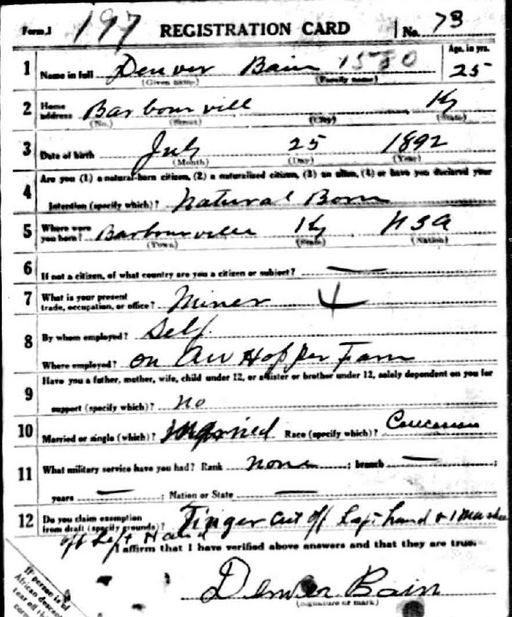 Form.1 197 REGISTRATION CARD No. 73
1 Name in full Denver Bain 1580 Age, in yrs. 25
(Given name) (Family name)
2 Home address Barbourvill Ky
(No.) (Street) (City) (State)
3 Date of birth July 25 1892
(Month) (Day) (Year)
Are you (1) a natural-born citizen, (2) a naturalized citizen, (3) an alien, (4) or have you declared your
4 intention (specify which)? Natural Born
5 Where were you born? Barbourville Ky USA
(Town) (State) (Nation)
6 If not a citizen, of what country are you a citizen or subject? —
7 What is your present trade, occupation, or office? Miner 4
8 By whom employed? Self
Where employed? on Hopper Farm
9 Have you a father, mother, wife, child under 12, or a sister or brother under 12, solely dependent on you for
support (specify which)? No
10 Married or single (which)? Married Race (specify which)? Caucasian
11 What military service have you had? Rank none ; branch — ;
years — ; Nation or State —
12 Do you claim exemption from draft (specify grounds)? Finger cut off hand & 1
off Left Hand
I affirm that I have verified above answers and that they are true.
Denver Bain
(Signature or mark)
If person is of
African descent
tear off
corn